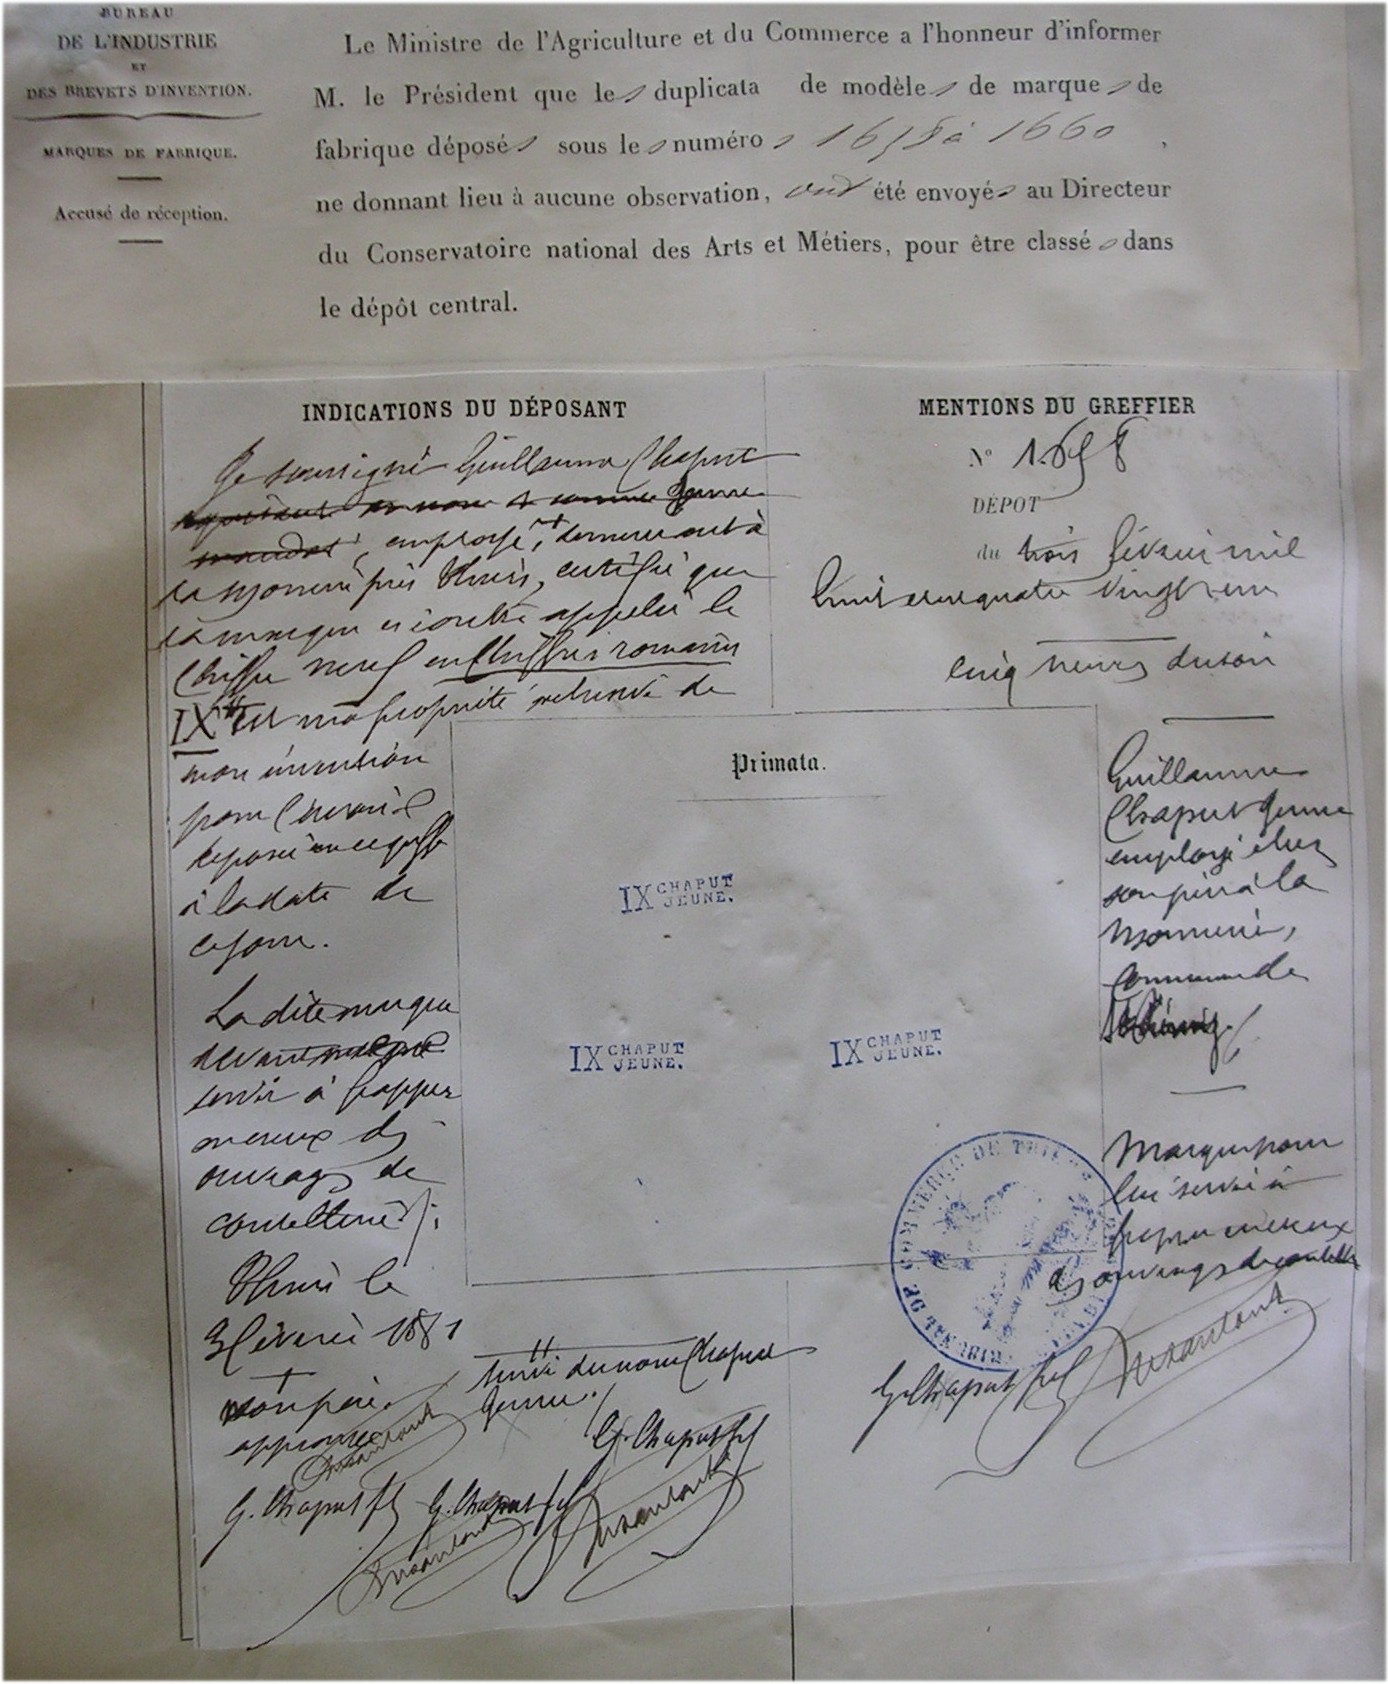 BUREAU
DE L'INDUSTRIE
ET
DES BREVETS D'INVENTION.
MARQUES DE FABRIQUE.
Accusé de réception.
Le Ministre de l'Agriculture et du Commerce a l'honneur d'informer
M. le Président que les duplicata de modèles de marques de
fabrique déposés sous les numéros 1658 à 1660,
ne donnant lieu à aucune observation, ont été envoyés au Directeur
du Conservatoire national des Arts et Métiers, pour être classés dans
le dépôt central.
INDICATIONS DU DÉPOSANT
Je soussigné Guillaume Chaput
jeune
employé, demeurant à
la Monnerie près Thiers, certifie que
la marque ci contre appelée le
Chiffre neuf en chiffres romains
IX Est ma propriété
mon invention
pour l'avoir
déposée au greffe
à la date de
ce jour.
La dite marque
devant
servir à frapper
mieux des
ouvrages de
coutellerie ;
Thiers le
3 février 1881
mon père
approuvé
G. Chaput fils
suivi du nom Chaput
jeune.
G. Chaput fils
G. Chaput fils
MENTIONS DU GREFFIER
N° 1658
DÉPOT
du trois février mil
huit cent quatre vingt un
cinq heures du soir
Guillaume
Chaput jeune
employé chez
son père à la
Monnerie,
commune de
Marque pour
lui servir à
frapper mieux
des ouvrages de coutelle
G. Chaput fils
Primata.
IX CHAPUT JEUNE.
IX CHAPUT JEUNE.
IX CHAPUT JEUNE.
TRIBUNAL DE COMMERCE DE THIERS